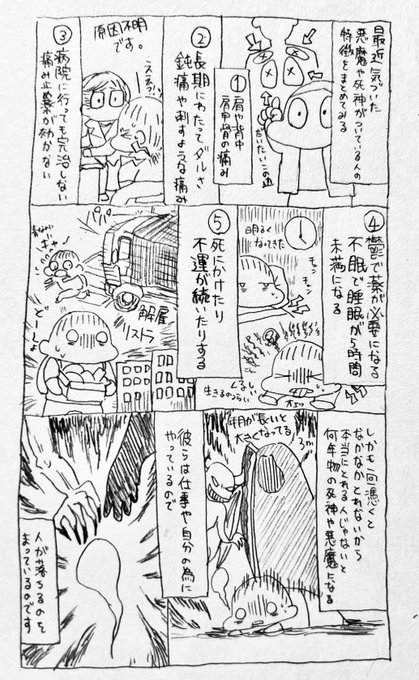 最近気づいた
悪魔や死神がついている人の
特徴をまとめてみる
①肩や背中
肩甲骨の痛み
だいたいこの辺
②長期にわたってダルさ
鈍痛や刺すような痛み
③病院に行っても完治しない
痛み止め薬が効かない
原因不明
です。
ええっ
④鬱で薬が必要になる
不眠で睡眠が5時間
未満になる
明るく
なってきた
チュン
チュン
くるしい
生きるのつらい
⑤死にかけたり
不運が続いたりする
解雇
リストラ
どーしよ
しかも一回憑くと
なかなかとれないから
本当にとれる人じゃないと
何年物の死神や悪魔になる
年月が長いと
大きくなってる
3m
彼らは仕事や自分の為に
やっているので
人が落ちるのを
まっているのです